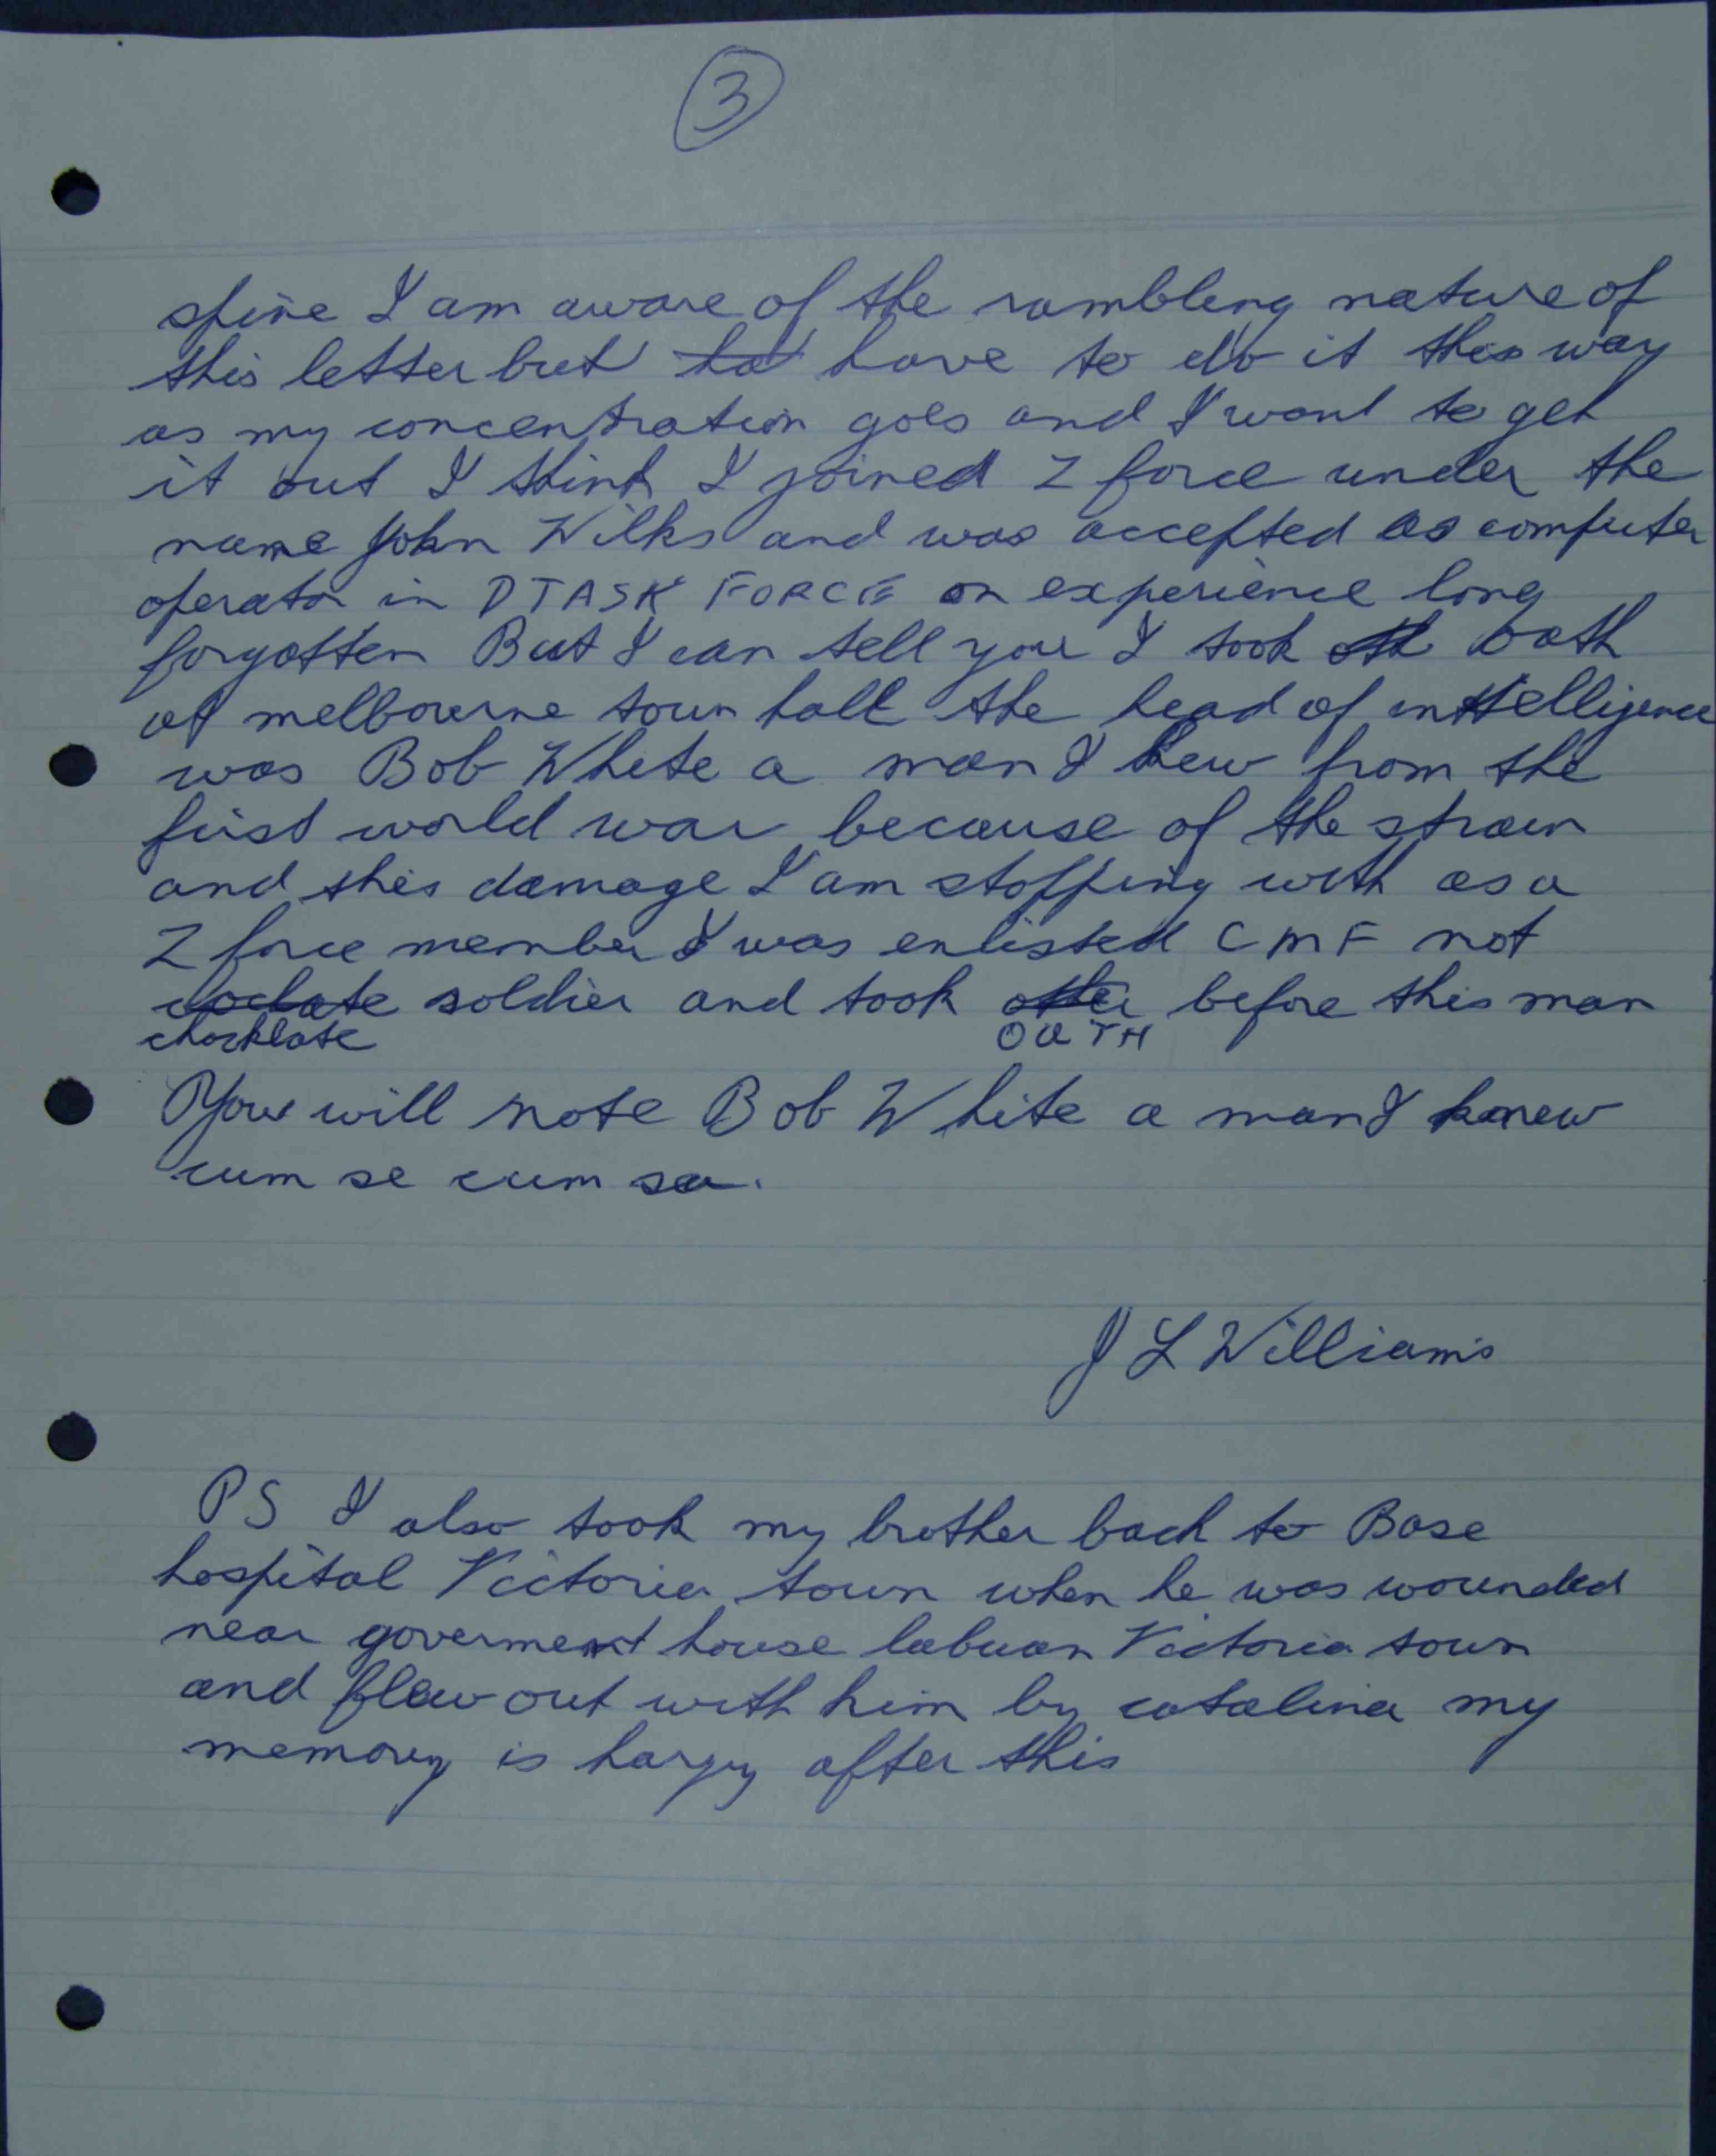 3
spine I am aware of the rambling nature of
this letter but ha have to do it this way
as my concentration goes and I want to get
it out I think I joined Z force under the
name John Wilks and was accepted as computer
operator in D TASK FORCE on experience long
forgotten But I can tell you I took oath
at melbourne town hall the head of inttelligence
was Bob White a man I kew from the
first world war because of the strain
and this damage I am stopping with as a
Z force member I was enlisted CMF not
soldier and took before this man
chocklate OATH
You will note Bob White a man I knew
cum se cum sa.
J L Williams
PS I also took my brother back to Base
hospital Victoria town when he was wounded
near goverment house labuan Victoria town
and flew out with him by catalina my
memory is hazy after this